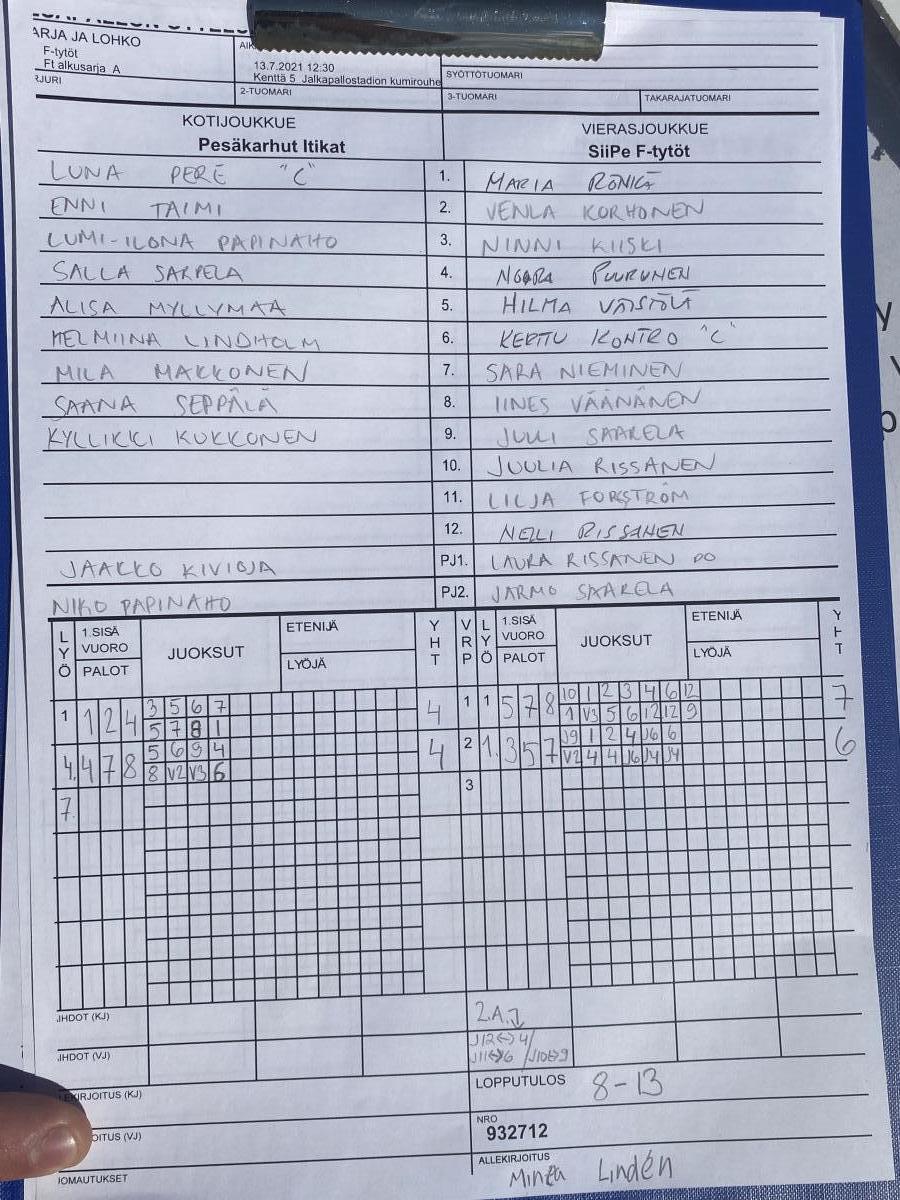 ARJA JA LOHKO
F-tytöt
Ft alkusarja A
13.7.2021 12:30
Kenttä 5 Jalkapallostadion kumirouhe
SYÖTTÖTUOMARI
2-TUOMARI
3-TUOMARI
TAKARAJATUOMARI
KOTIJOUKKUE
Pesäkarhut Itikat
VIERASJOUKKUE
SiiPe F-tytöt
LUNA PERE "C" 1. MARIA RÖNKÄ
ENNI TAIMI 2. VENLA KORHONEN
LUMI-ILONA PAPINAHO 3. NINNI KIISKI
SALLA SARPELA 4. NOORA PUURUNEN
ALISA MYLLYMAA 5. HILMA
HELMIINA LINDHOLM 6. KERTTU KONTRO "C"
MILA MAKKONEN 7. SARA NIEMINEN
SAANA SEPPÄLÄ 8. IINES VÄÄNÄNEN
KYLLIKKI KUKKONEN 9. JULI SAARELA
10. JUULIA RISSANEN
11. LILJA FORSSTRÖM
12. NELLI RISSANEN
JAAKKO KIVIOJA PJ1. LAURA RISSANEN
NIKO PAPINAHO PJ2. JARMO SAARELA
LYÖ 1.SISÄ VUORO PALOT JUOKSUT ETENIJÄ LYÖJÄ YHT VRP LYÖ 1.SISÄ VUORO PALOT JUOKSUT ETENIJÄ LYÖJÄ YHT
1 1 2 4 3 5 6 7 4 1 1 5 7 8 10 1 2 3 4 6 12 7
5 7 8 1 1 V3 5 6 12 12 9
4. 4 7 8 5 6 9 4 4 2 1. 3 5 7 J9 1 2 4 J6 6 6
8 V2 V3 6 V2 4 4 J6 J4 J4
7. 3
JHDOT (KJ) 2.A.↓
JHDOT (VJ) J12↔4/
J11↔6 /J10↔9
EKIRJOITUS (KJ) LOPPUTULOS 8-13
OITUS (VJ) NRO
932712
ALLEKIRJOITUS
IOMAUTUKSET Lindén